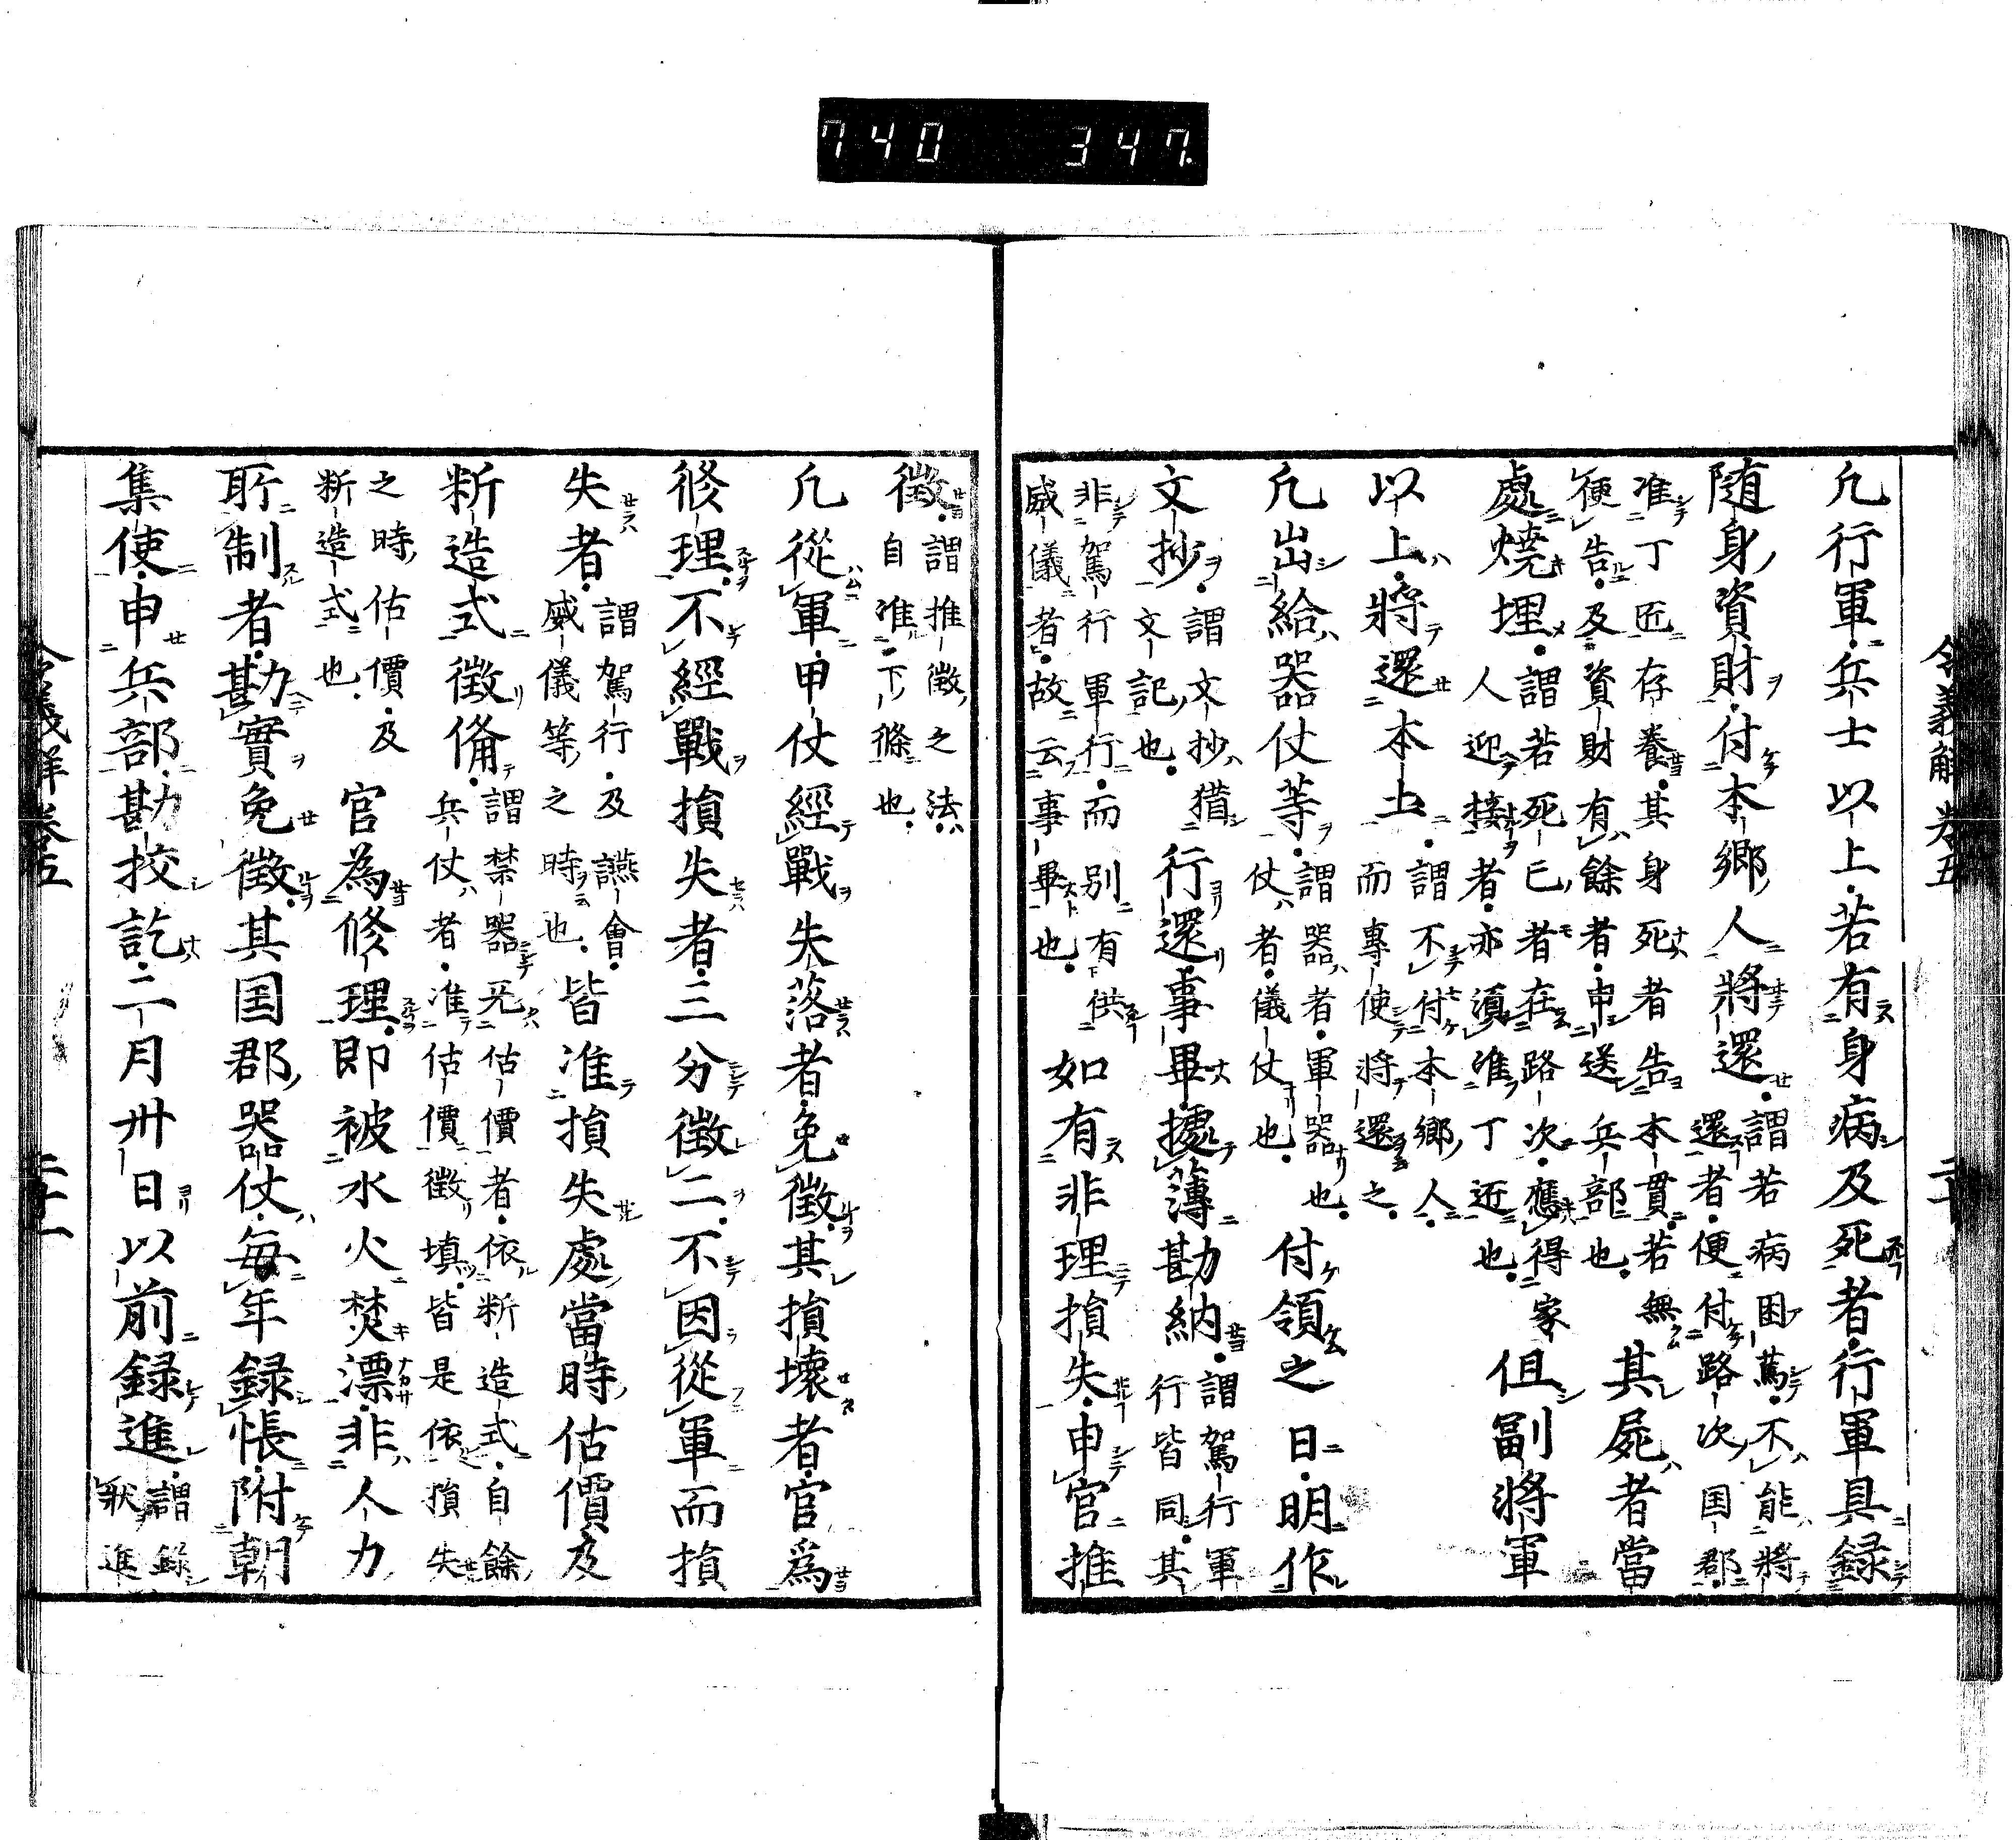 740 347
令義解 卷五
凢行軍兵士以上若有身病及死者行軍具録
隨身資財付本郷人將還謂若病困篤不能將還者便付路次国郡
准丁匠存養其身死者告本貫若無便告及資財有餘者申送兵部也其屍者當
處焼埋謂若死已者在路次應得家人迎接者亦湏准丁近也但副將軍
以上將還本土謂不付本郷人而專使將還之
凢出給器仗等謂器者軍器也仗者儀仗也付領之日明作
文抄謂文抄猶文記也行還事畢據簿勘納謂駕行軍行皆同其
非駕行軍行而別有供威儀者故云事畢也如有非理損失申官推
徵謂推徵之法自准下條也
凢從軍甲仗經戰失落者免徵其損壞者官爲
修理不經戰損失者三分徵二不因從軍而損
失者謂駕行及讌會威儀等之時也皆准損失處當時估價及
料造式徵備謂禁器无估價者依料造式自餘兵仗者准估價徵填皆是依損失
之時估價及料造式也官為修理即被水火焚漂非人力
所制者勘實免徵其国郡器仗每年録帳附朝
集使申兵部勘挍訖二月卅日以前録進謂録狀進
令義解卷五
二十一